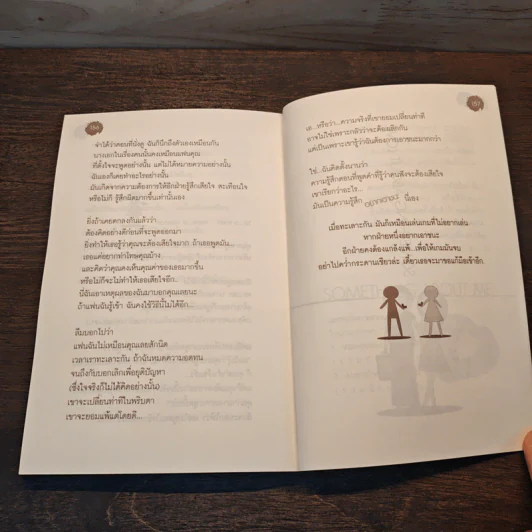 186
จำได้ว่าตอนที่นั่งดู ฉันก็นึกถึงตัวเองเหมือนกัน
นางเอกในเรื่องคนนั้นคงเหมือนแฟนคุณ
ที่ตั้งใจจะพูดอย่างนั้น แต่ไม่ได้หมายความอย่างนั้น
ฉันเองก็เคยทำอะไรอย่างนั้น
มันเกิดจากความต้องการให้อีกฝ่ายรู้สึกเสียใจ สะเทือนใจ
หรือไม่ก็ รู้สึกผิดมากขึ้นเท่านั้นเอง
ยิ่งถ้าเคยตกลงกันแล้วว่า
ต้องคิดอย่างดีก่อนที่จะพูดออกมา
ยิ่งทำให้เธอรู้ว่าคุณจะต้องเสียใจมาก ถ้าเธอพูดมัน...
เธอแค่อยากทำโทษคุณบ้าง
และคิดว่าคุณคงเห็นคุณค่าของเธอมากขึ้น
หรือไม่ก็จะไม่ทำให้เธอเสียใจอีก...
นี่ฉันเอาเหตุผลของฉันมาบอกคุณเลยนะ
ถ้าแฟนฉันรู้เข้า ฉันคงใช้วิธีนี้ไม่ได้อีก...
ลืมบอกไปว่า
แฟนฉันไม่เหมือนคุณเลยสักนิด
เวลาเราทะเลาะกัน ถ้าฉันหมดความอดทน
จนถึงกับบอกเลิกเพื่อยุติปัญหา
(ซึ่งใจจริงก็ไม่ได้คิดอย่างนั้น)
เขาจะเปลี่ยนท่าทีในพริบตา
เขาจะยอมแพ้แต่โดยดี...
187
เอ...หรือว่า...ความจริงที่เขายอมเปลี่ยนท่าที
อาจไม่ใช่เพราะกลัวว่าจะต้องเลิกกัน
แต่เป็นเพราะเขารู้ว่าฉันต้องการเอาชนะมากกว่า
ใช่...ฉันคิดตั้งนานว่า
ความรู้สึกตอนที่พูดคำที่รู้ว่าคนฟังจะต้องเสียใจ
เขาเรียกว่าอะไร...
มันเป็นความรู้สึก อยากเอาชนะ นี่เอง
เมื่อทะเลาะกัน มันก็เหมือนเล่นเกมที่ไม่อยากเล่น
หากฝ่ายหนึ่งอยากเอาชนะ
อีกฝ่ายคงต้องแกล้งแพ้...เพื่อให้เกมมันจบ
อย่าไปคว่ำกระดานเชียวล่ะ เดี๋ยวเธอจะมาขอแก้มือเข้าอีก